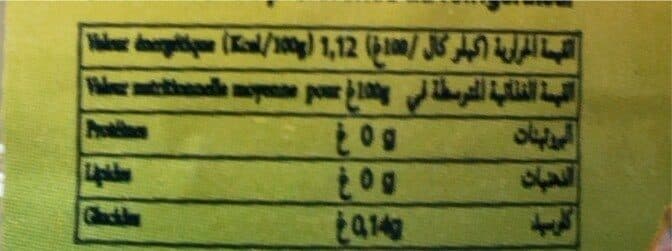 Valeur énergétique (Kcal/100g) 1,12 القيمة الحرارية (كيلو كال /100غ)
Valeur nutritionnelle moyenne pour 100g غ القيمة الغذائية المتوسطة في
Protéines 0 g غ البروتينات
Lipides 0 g غ الدهنيات
Glucides 0,14g غ